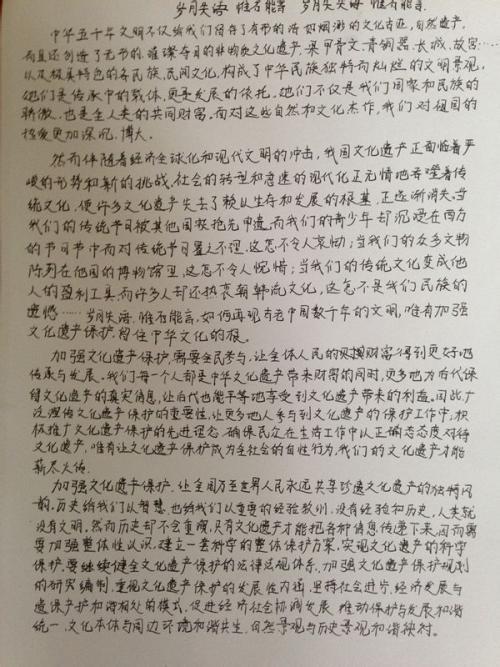 岁月失语 惟石能言 岁月失语 惟石能言
中华五千年文明不仅给我们留存了有形的浩如烟海的文化古迹,自然遗产,
而且还创造了无形的、璀璨夺目的非物质文化遗产。甲骨文、青铜器、长城、故宫……
以及极具特色的各民族、民间文化,构成了中华民族独特而灿烂的文明景观,
她们是传承中的载体,更是发展的依托。她们不仅是我们国家和民族的
骄傲,也是全人类的共同财富。面对这些自然和文化杰作,我们对祖国的
热爱更加深沉、博大。
然而伴随着经济全球化和现代文明的冲击,我国文化遗产正面临着严
峻的形势和新的挑战,社会的转型和急速的现代化正无情地吞噬着传
统文化,使许多文化遗产失去了赖以生存和发展的根基,正逐渐消失。当
我们的传统节日被其他国家抢先申遗,而我们的青少年却沉浸在西方
的节日节中而对传统节日置之不理,这怎不令人哀恸;当我们的众多文物
陈列在他国的博物馆里,这怎不令人惋惜;当我们的传统文化变成他
人的盈利工具,而许多人却还热衷韩流文化,这怎不是我们民族的
遗憾……岁月失语,惟石能言,如何再现古老中国数千年的文明,唯有加强
文化遗产保护,留住中华文化的根。
加强文化遗产保护,需要全民参与,让全体人民的财富得到更好地
传承与发展。我们每一个人都是中华文化遗产带来财富的同时,更多地为后代保
留文化遗产的真实消息,让后代也能平等地享受到文化遗产带来的利益。因此广
泛宣传文化遗产保护的重要性,让更多地人参与到文化遗产的保护工作中,积
极推广文化遗产保护的先进理念,确保民众在生活工作中以正确态度对待
文化遗产,唯有让文化遗产保护成为全社会的自觉行为,我们的文化遗产才能
薪尽火传。
加强文化遗产保护,让全国乃至世界人民永远共享珍遗文化遗产的独特闪
韵。历史给我们以智慧,也给我们以重要的经验教训,没有经验和历史,人类就
没有文明。然而历史却不会重演,只有文化遗产才能把各种信息传递下来,因而需
要加强整体性认识,建立一套科学的整体保护方案,实现文化遗产的科学
保护,要继续健全文化遗产保护的法律法规体系,加强文化遗产保护规划
的研究编制,重视文化遗产保护的发展性内涵,坚持社会进步、经济发展与
遗产保护和谐相处的模式,促进经济社会协调发展,推动保护与发展和谐
统一,文化本体与周边环境和谐共生,自然景观与历史景观和谐映衬。